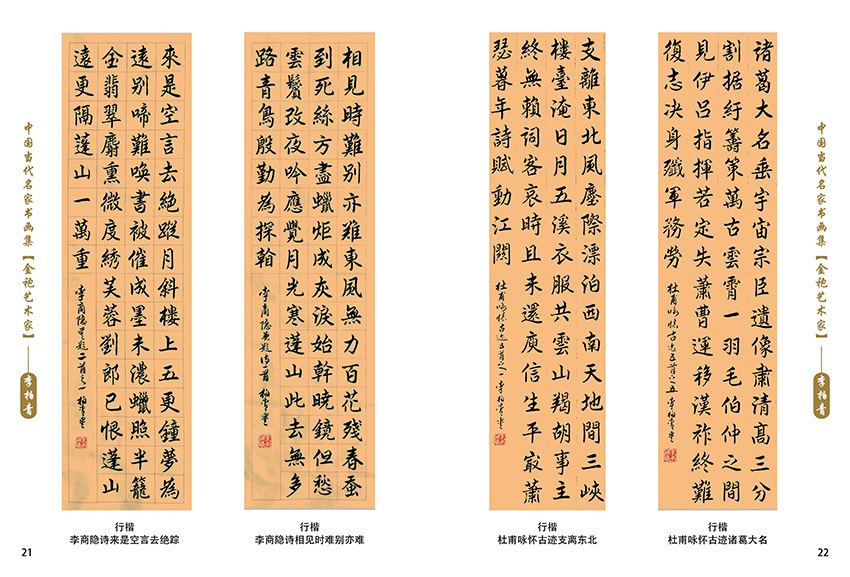 中国当代名家书画集【金袍艺术家】
李柏青
來是空言去絕蹤月斜樓上五更鐘夢為
遠别啼難喚書被催成墨未濃蠟照半籠
金翡翠麝熏微度綉芙蓉劉郎已恨蓬山
遠更隔蓬山一萬重
行楷
李商隐诗来是空言去绝踪
21
相見時難别亦難東風無力百花殘春蚕
到死絲方盡蠟炬成灰淚始幹曉鏡但愁
雲鬢改夜吟應覺月光寒蓬山此去無多
路青鳥殷勤為探翰
行楷
李商隐诗相见时难别亦难
支離東北風塵際漂泊西南天地間三峽
樓臺淹日月五溪衣服共雲山羯胡事主
終無賴詞客哀時且未還庾信生平寂蕭
瑟暮年詩賦動江關
杜甫咏怀古迹五首之一李柏青書
行楷
杜甫咏怀古迹支离东北
諸葛大名垂宇宙宗臣遺像肅清高三分
割据紆籌策萬古雲霄一羽毛伯仲之間
見伊吕指揮若定失蕭曹運移漢祚終難
復志决身殲軍務勞
杜甫咏怀古迹五首之五李柏青書
行楷
杜甫咏怀古迹诸葛大名
22
中国当代名家书画集【金袍艺术家】
李柏青